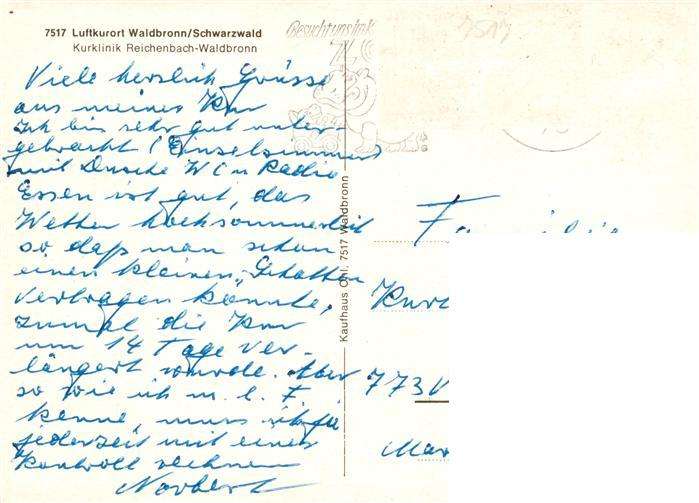 7517 Luftkurort Waldbronn/Schwarzwald
Kurklinik Reichenbach-Waldbronn
Besucht uns im
7517
Viele herzlich Grüsse
aus meiner Kur
Ich bin sehr gut unter-
gebracht (Einzelzimmer
mit Dusche WC u Radio
Essen ist gut, das
Wetter hochsommerlich
so daß man schon
einen kleinen „Schatten
vertragen könnte,
zumal die Kur
um 14 Tage ver-
längert wurde. Aber
so wie ich m. l. F.
kenne, muss ich ja
jederzeit mit einer
Kontroll rechnen
Norbert
Kaufhaus Ohl, 7517 Waldbronn
Kurc
773
Mar